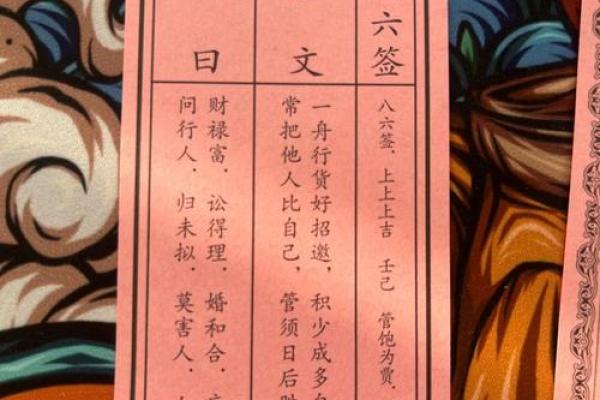 六签
八六签．上上上吉　壬己　管饱为贾．
文
一舟行货好招邀，积少成多
常把他人比自己，管须日后
曰
财禄富．讼得理．婚和合．
问行人．归未拟．莫害人．